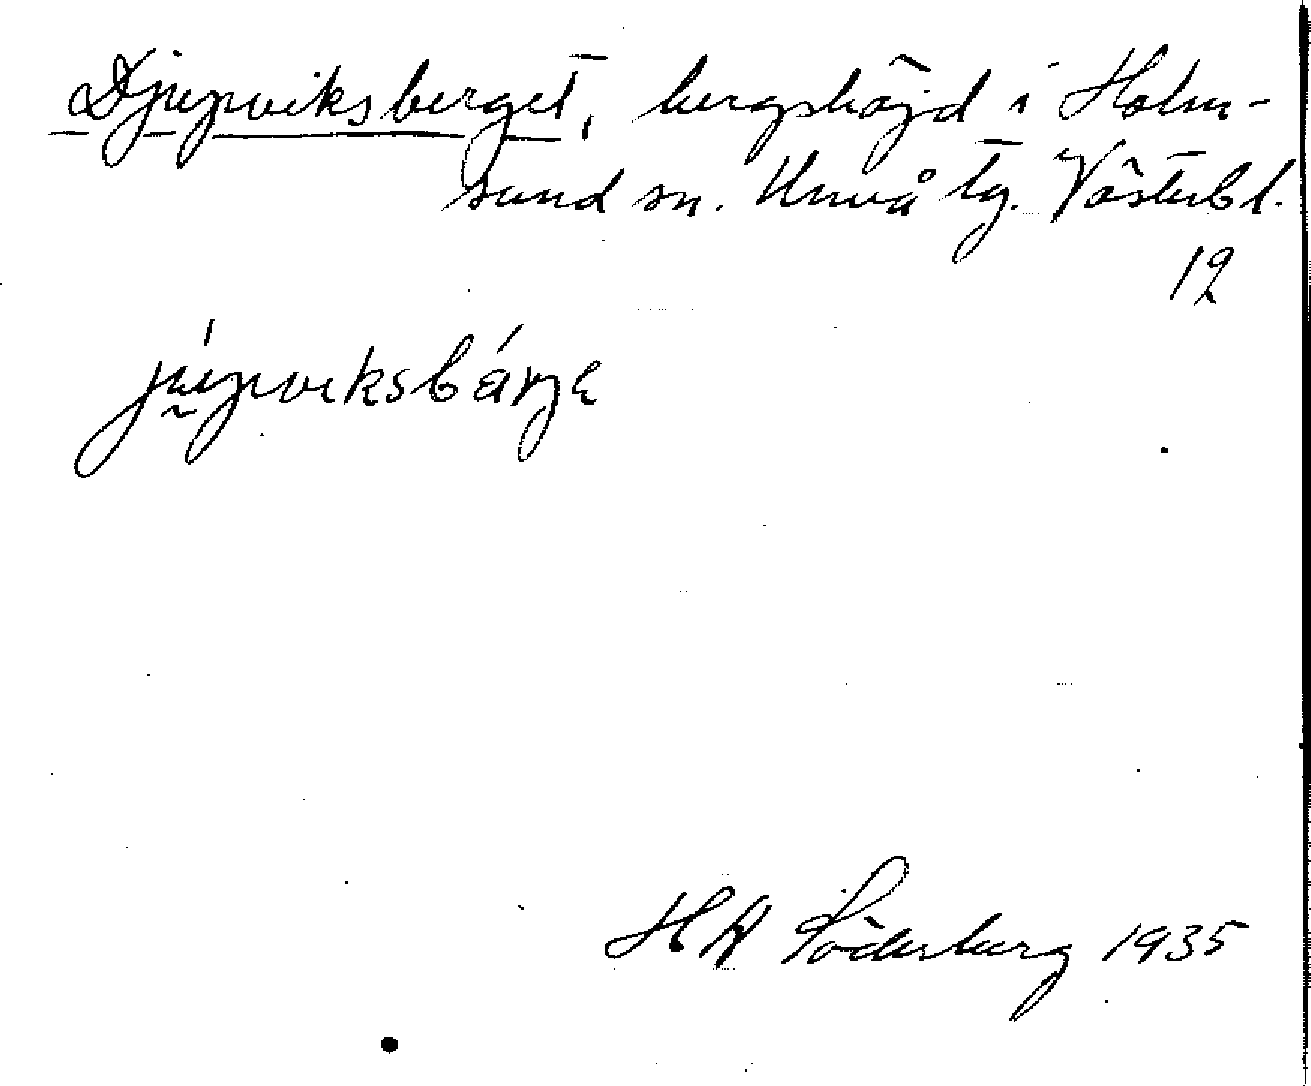 Djupviksberget, bergshöjd i Holm-
sund sn. Umeå tg. Västerb l.
12
júpviksbárjɛ
H A Söderberg 1935